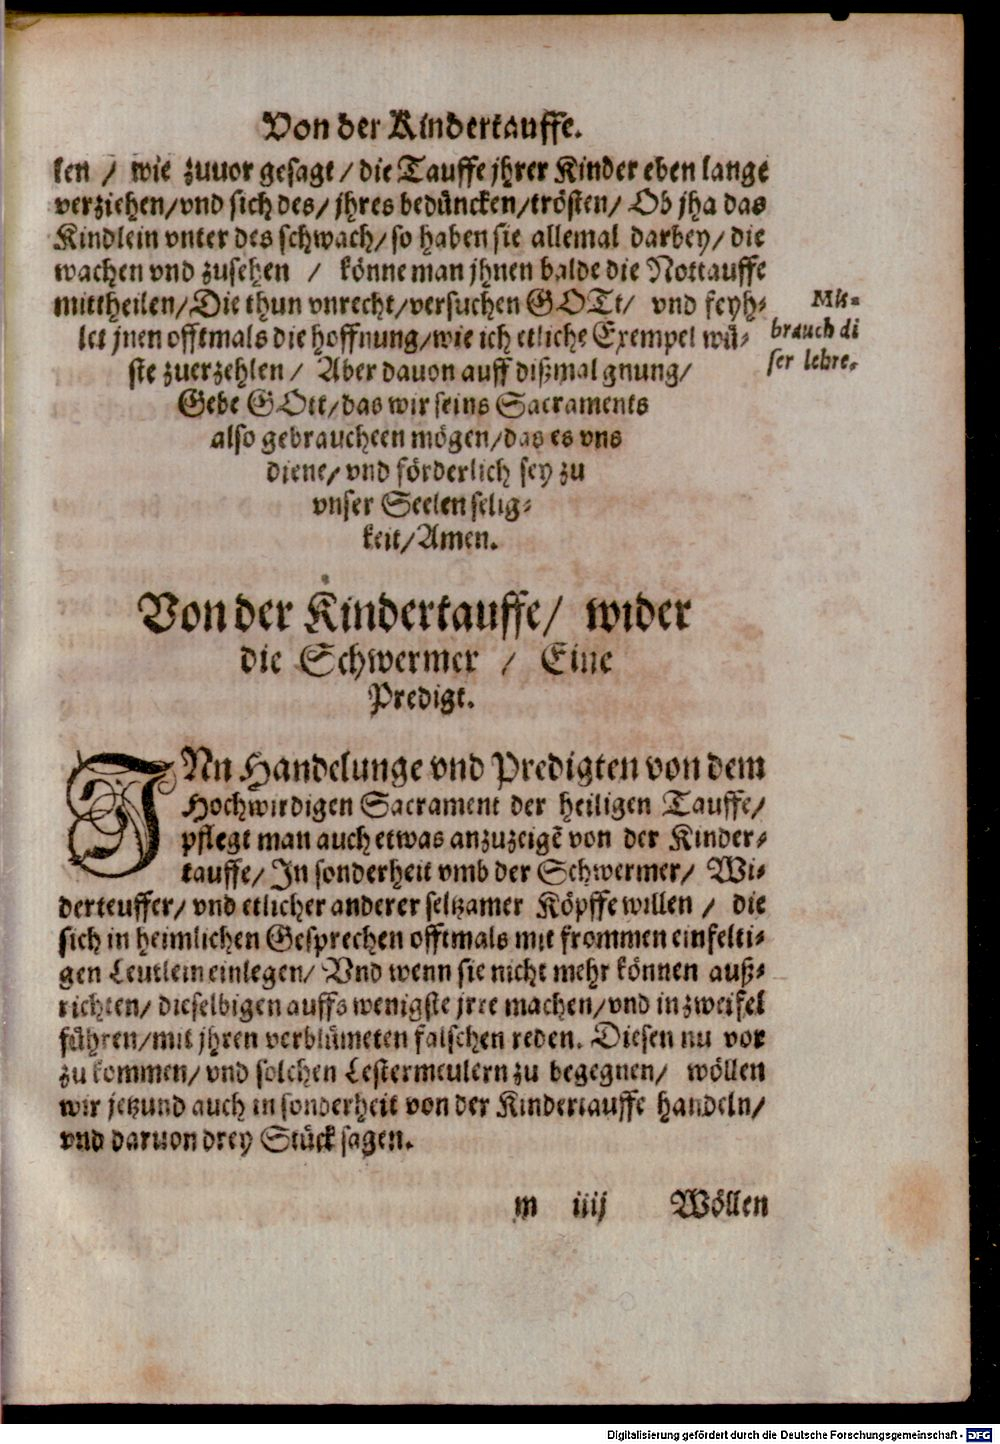 Von der Kindertauffe.
len / wie zuuor gesagt / die Tauffe jhrer Kinder eben lange
verziehen/vnd sich des/ jhres bedüncken/trösten/ Ob jha das
Kindlein vnter des schwach/ so haben sie allemal darbey/ die
wachen vnd zusehen / könne man jhnen balde die Nottauffe
mittheilen/ Die thun vnrecht/versuchen GOTt/ vnd feyh-
let jnen offtmals die hoffnung/wie ich etliche Exempel wü-
ste zuerzehlen/ Aber dauon auff dißmal gnung/
Gebe GOtt/das wir seins Sacraments
also gebraucheen mögen/das es vns
diene/ vnd förderlich sey zu
vnser Seelen selig-
keit/Amen.
Mis-
brauch di
ser lehre.
Von der Kindertauffe/ wider
die Schwermer / Eine
Predigt.
INn Handelunge vnd Predigten von dem
Hochwirdigen Sacrament der heiligen Tauffe/
pflegt man auch etwas anzuzeigẽ von der Kinder-
tauffe/ In sonderheit vmb der Schwermer/ Wi-
derteuffer/ vnd etlicher anderer seltzamer Köpffe willen / die
sich in heimlichen Gesprechen offtmals mit frommen einfelti-
gen Leutlein einlegen/ Vnd wenn sie nicht mehr können auß-
richten/ dieselbigen auffs wenigste jrre machen/vnd in zweifel
führen/mit jhren verblümeten falschen reden. Diesen nu vor
zu kommen/ vnd solchen Lestermeulern zu begegnen/ wöllen
wir jetzund auch in sonderheit von der Kindertauffe handeln/
vnd daruon drey Stück sagen.
m iiij Wöllen
Digitalisierung gefördert durch die Deutsche Forschungsgemeinschaft - DFG